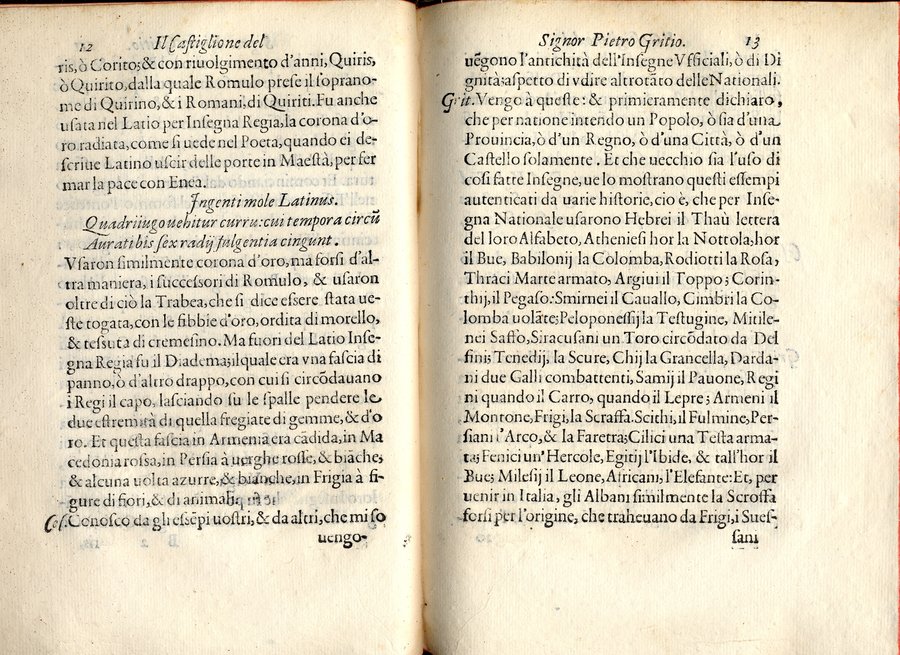 12 Il Castiglione del
ris, ò Corito; & con riuolgimento d'anni, Quiris,
ò Quirito, dalla quale Romulo prese il soprano-
me di Quirino, & i Romani, di Quiriti. Fu anche
usata nel Latio per Insegna Regia, la corona d'o-
ro radiata, come si uede nel Poeta, quando ei de-
scriue Latino uscir delle porte in Maestà, per fer
mar la pace con Enea.
Ingenti mole Latinus.
Quadriiugo uehitur curru: cui tempora circū
Aurati bis sex radij fulgentia cingunt.
Vsaron similmente corona d'oro, ma forsi d'al-
tra maniera, i successori di Romulo, & usaron
oltre di ciò la Trabea, che si dice essere stata ue-
ste togata, con le fibbie d'oro, ordita di morello,
& tessuta di cremesino. Ma fuori del Latio Inse-
gna Regia fu il Diadema; ilquale era vna fascia di
panno, ò d'altro drappo, con cui si circōdauano
i Regi il capo, lasciando su le spalle pendere le
due estremità di quella fregiate di gemme, & d'o
ro. Et questa fascia in Armenia era cādida, in Ma
cedonia rossa, in Persia à uerghe rosse, & biāche,
& alcuna uolta azurre, & bianche, in Frigia à fi-
gure di fiori, & di animali.
Cos. Conosco da gli essēpi uostri, & da altri, che mi so
uengo-
Signor Pietro Gritio. 13
uēgono l'antichità dell'Insegne Vfficiali, ò di Di
gnità: aspetto di vdire altrotāto delle Nationali.
Grit. Vengo à queste: & primieramente dichiaro,
che per natione intendo un Popolo, ò sia d'una
Prouincia, ò d'un Regno, ò d'una Città, ò d'un
Castello solamente. Et che uecchio sia l'uso di
cosi fatte Insegne, ue lo mostrano questi essempi
autenticati da uarie historie, cio è, che per Inse-
gna Nationale usarono Hebrei il Thaù lettera
del loro Alfabeto, Atheniesi hor la Nottola; hor
il Bue, Babilonij la Colomba, Rodiotti la Rosa,
Thraci Marte armato, Argiui il Toppo; Corin-
thij, il Pegaso: Smirnei il Cauallo, Cimbri la Co-
lomba uolāte; Peloponessij la Testugine, Mitile-
nei Saffo, Siracusani un Toro circōdato da Del
fini; Tenedij, la Scure, Chij la Grancella, Darda-
ni due Galli combattenti, Samij il Pauone, Regi
ni quando il Carro, quando il Lepre; Armeni il
Montone, Frigi, la Scraffa. Scithi, il Fulmine, Per-
siani l'Arco, & la Faretra; Cilici una Testa arma-
ta; Fenici un'Hercole, Egitij l'Ibide, & tall'hor il
Bue; Milesij il Leone, Africani, l'Elefante: Et, per
uenir in Italia, gli Albani similmente la Scroffa
forsi per l'origine, che traheuano da Frigi, i Sues-
sani